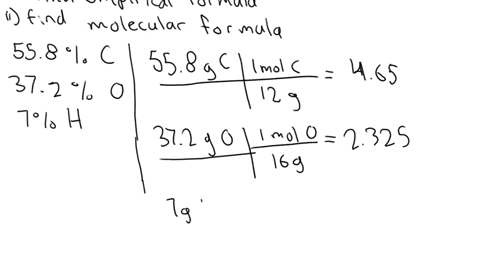 empirical formula
ii) find molecular formula
55.8% C
37.2% O
7% H
55.8 g C | 1 mol C = 4.65
12 g
37.2 g O | 1 mol O = 2.325
16g
7g